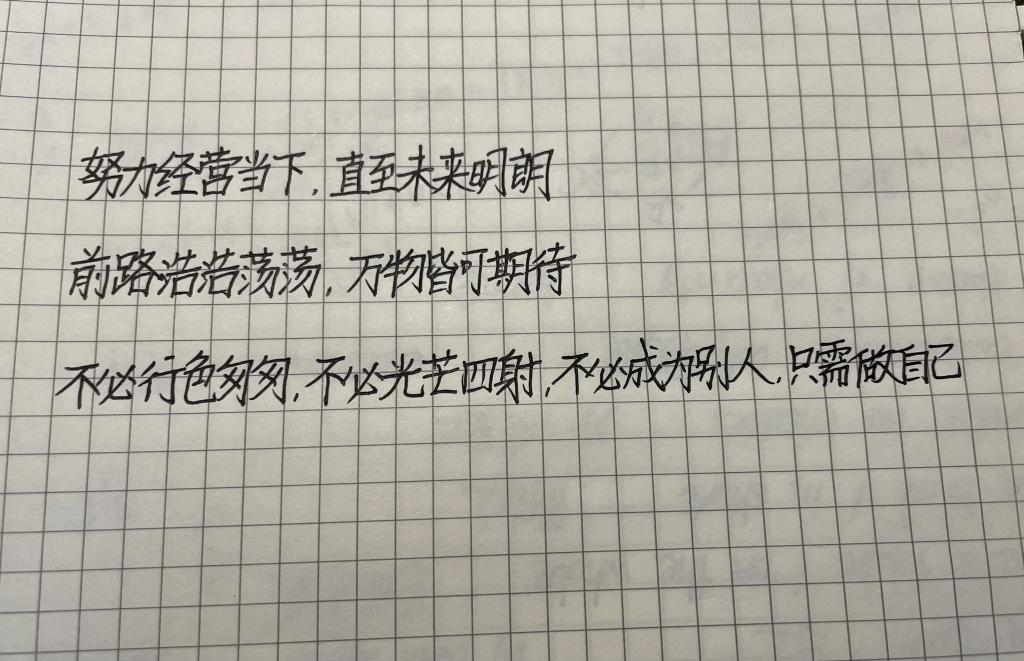 努力经营当下,直至未来明朗
前路浩浩荡荡,万物皆可期待
不必行色匆匆,不必光芒四射,不必成为别人,只需做自己